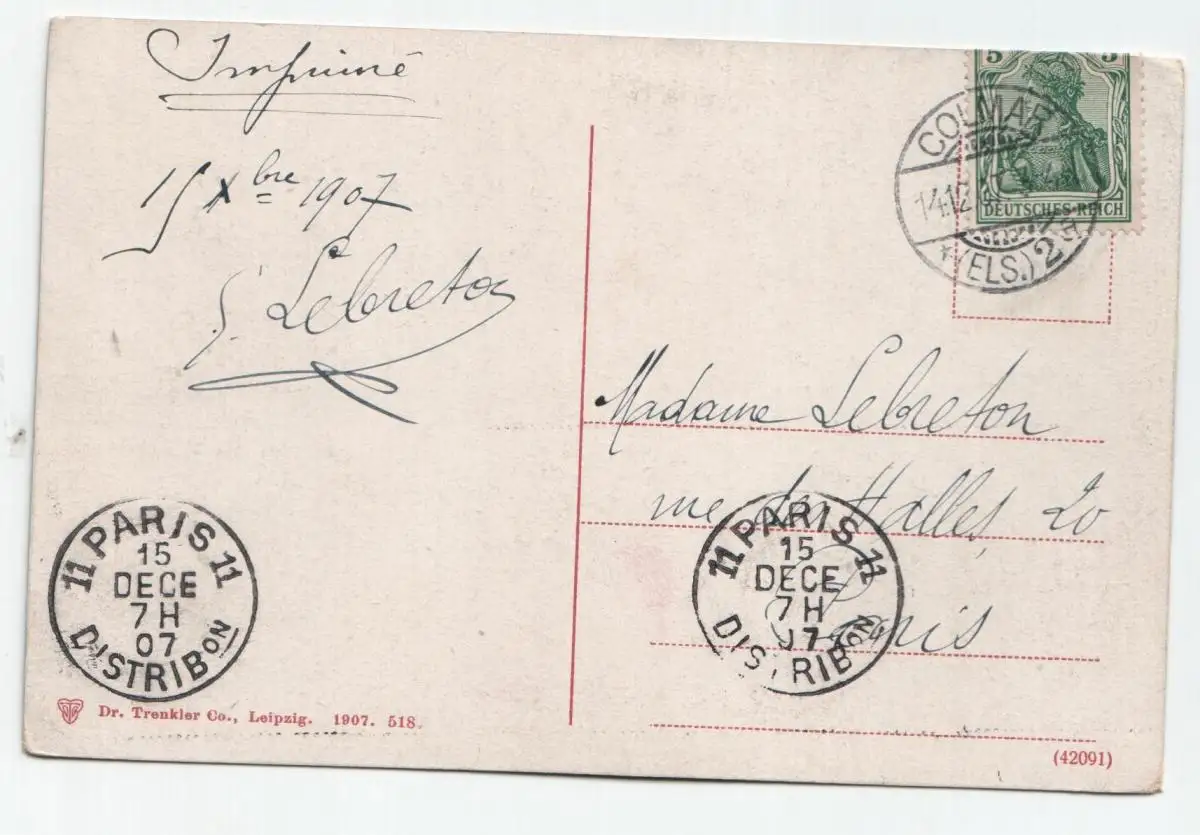 Imprimé
15 Xbre 1907
Lebreton
5 5
DEUTSCHES REICH
COLMAR
14.12.07
* (ELS.) 2a
Madame Lebreton
rue des Halles, 20
Paris
11 PARIS 11
15
DECE
7H
07
DISTRIBON
11 PARIS 11
15
DECE
7H
07
DISTRIBON
Dr. Trenkler Co., Leipzig. 1907. 518.
(42091)